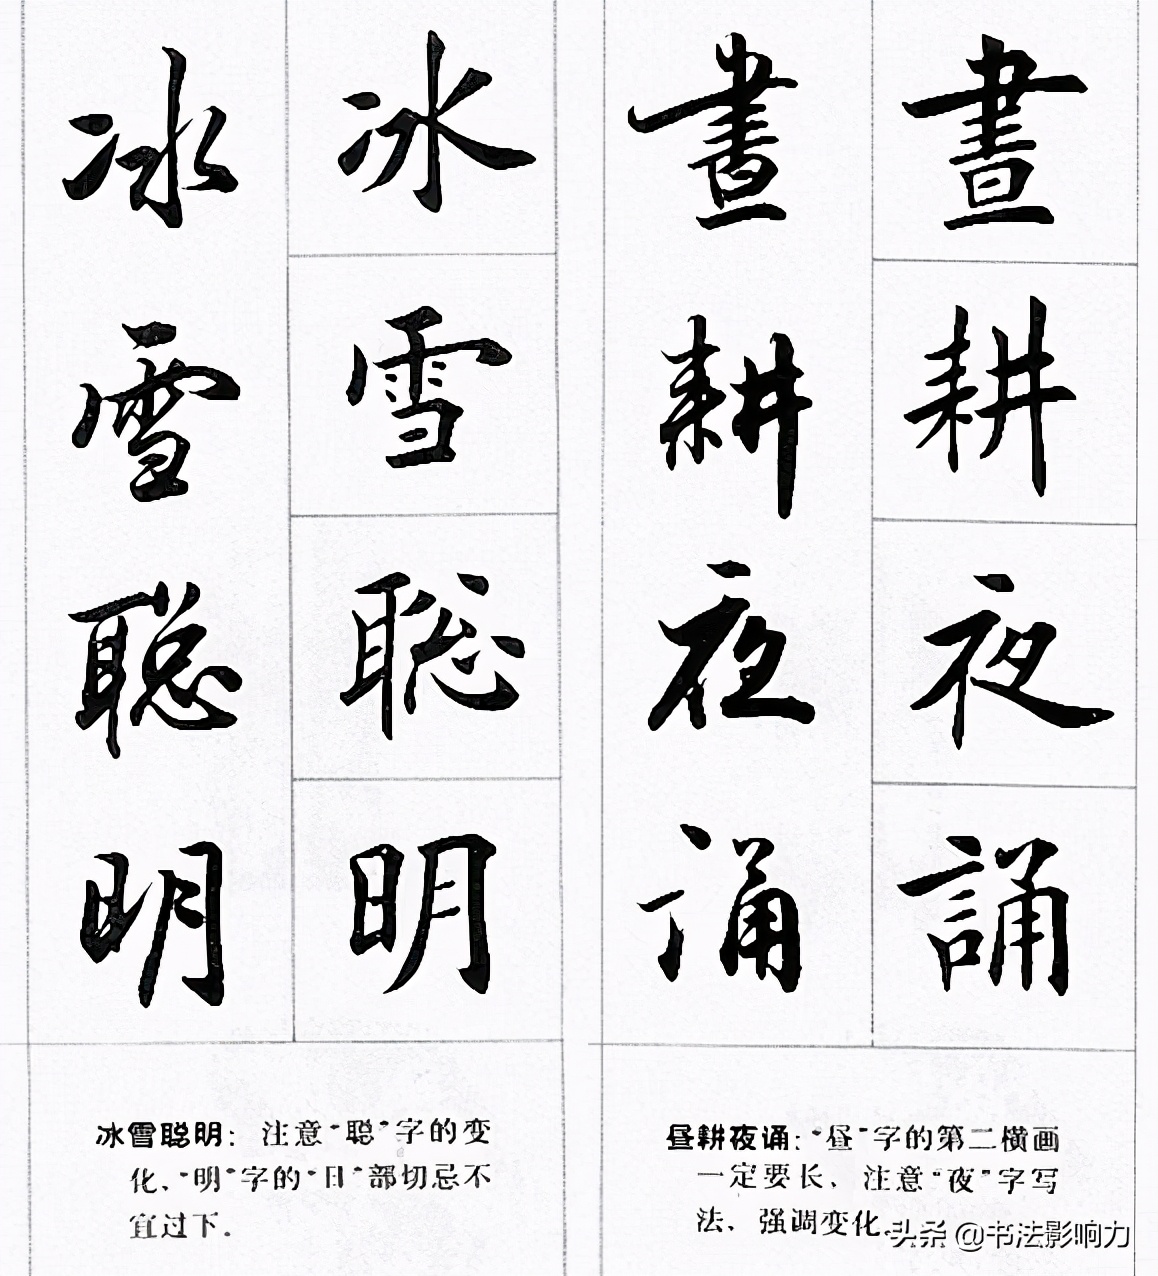 晝耕夜誦
晝耕夜诵
冰雪聡明
冰雪聪明
冰雪聪明：注意“聪”字的变
化，“明”字的“日”部切忌不
宜过下。
昼耕夜诵：“昼”字的第二横画
一定要长，注意“夜”字写
法，强调变化。
头条 @书法影响力